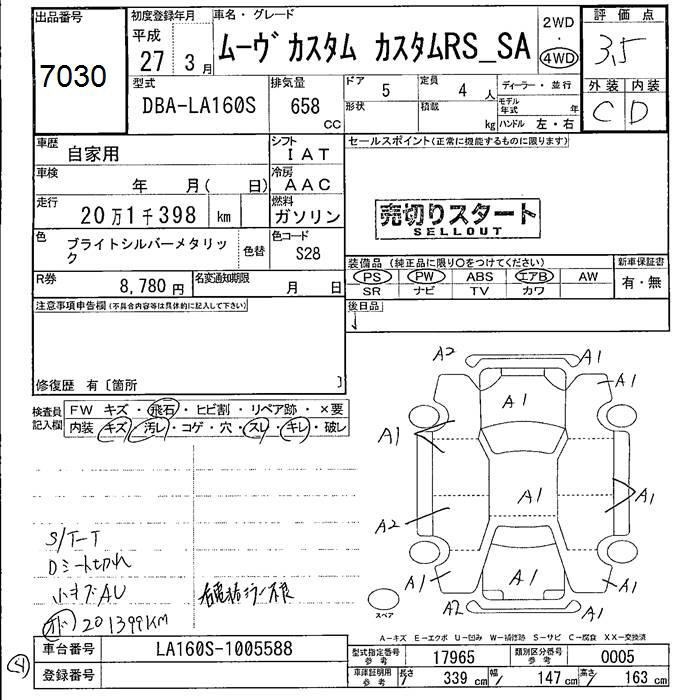 出品番号
7030
初度登録年月
平成
27 3月
車名・グレード
ムーヴ カスタム カスタムRS_SA
2WD
・
4WD
評価点
3.5
外装 内装
C D
型式
DBA-LA160S
排気量
658
CC
ドア
5
定員
4 人
形状
積載
kg
ディーラー・並行
モデル年式 年
ハンドル 左・右
車歴
自家用
シフト
IAT
車検
年 月( 日)
冷房
AAC
走行
20万1千398 km
燃料
ガソリン
色
ブライトシルバーメタリック
色替
色コード
S28
R券
8,780円
名変通知期限
月 日
セールスポイント(正常に機能するものに限ります)
売切りスタート
SELLOUT
装備品(純正品に限り○をつけてください)
PS PW ABS エアB AW
SR ナビ TV カワ
新車保証書
有・無
後日品
注意事項申告欄(不具合内容等は具体的に記入して下さい)
修復歴 有〔箇所 〕
検査員
記入欄
FW キズ・飛石・ヒビ割・リペア跡・×要
内装 キズ・汚レ・コゲ・穴・スレ・キレ・破レ
S/T-T
Dシート切れ
小キズAU
201399KM
A2 A1
A1 A1
A1
A1 A1
A2
A1 A1 A1
A2 A1
スペア
A-キズ E-エクボ U-凹み W-補修跡 S-サビ C-腐食 XX-交換済
4
車台番号
LA160S-1005588
登録番号
型式指定番号
参考
17965
類別区分番号
参考
0005
車庫証明用
参考
長さ 339 cm 幅 147 cm 高さ 163 cm